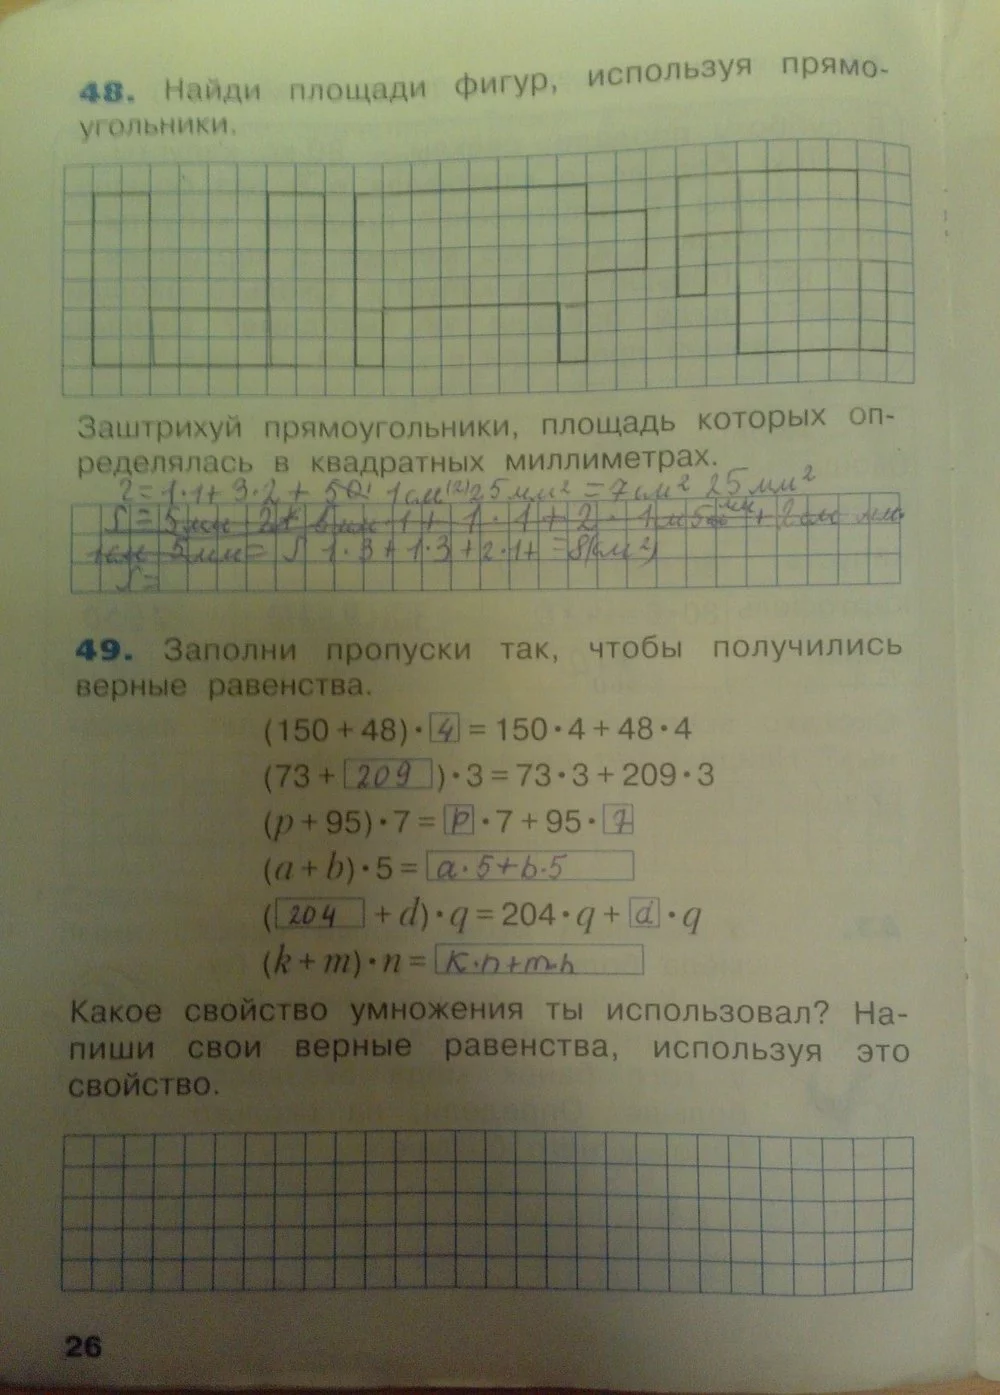 48. Найди площади фигур, используя прямо-
угольники.
Заштрихуй прямоугольники, площадь которых оп-
ределялась в квадратных миллиметрах.
2=1·1+3·2+ 25мм² =7см² 25мм²
1·3+1·3+2·1+ =8(см²)
S=
49. Заполни пропуски так, чтобы получились
верные равенства.
(150 + 48) · 4 = 150 · 4 + 48 · 4
(73 + 209) · 3 = 73 · 3 + 209 · 3
(p + 95) · 7 = p · 7 + 95 · 7
(a + b) · 5 = a·5+b·5
(204 + d) · q = 204 · q + d · q
(k + m) · n = k·n+m·n
Какое свойство умножения ты использовал? На-
пиши свои верные равенства, используя это
свойство.
26